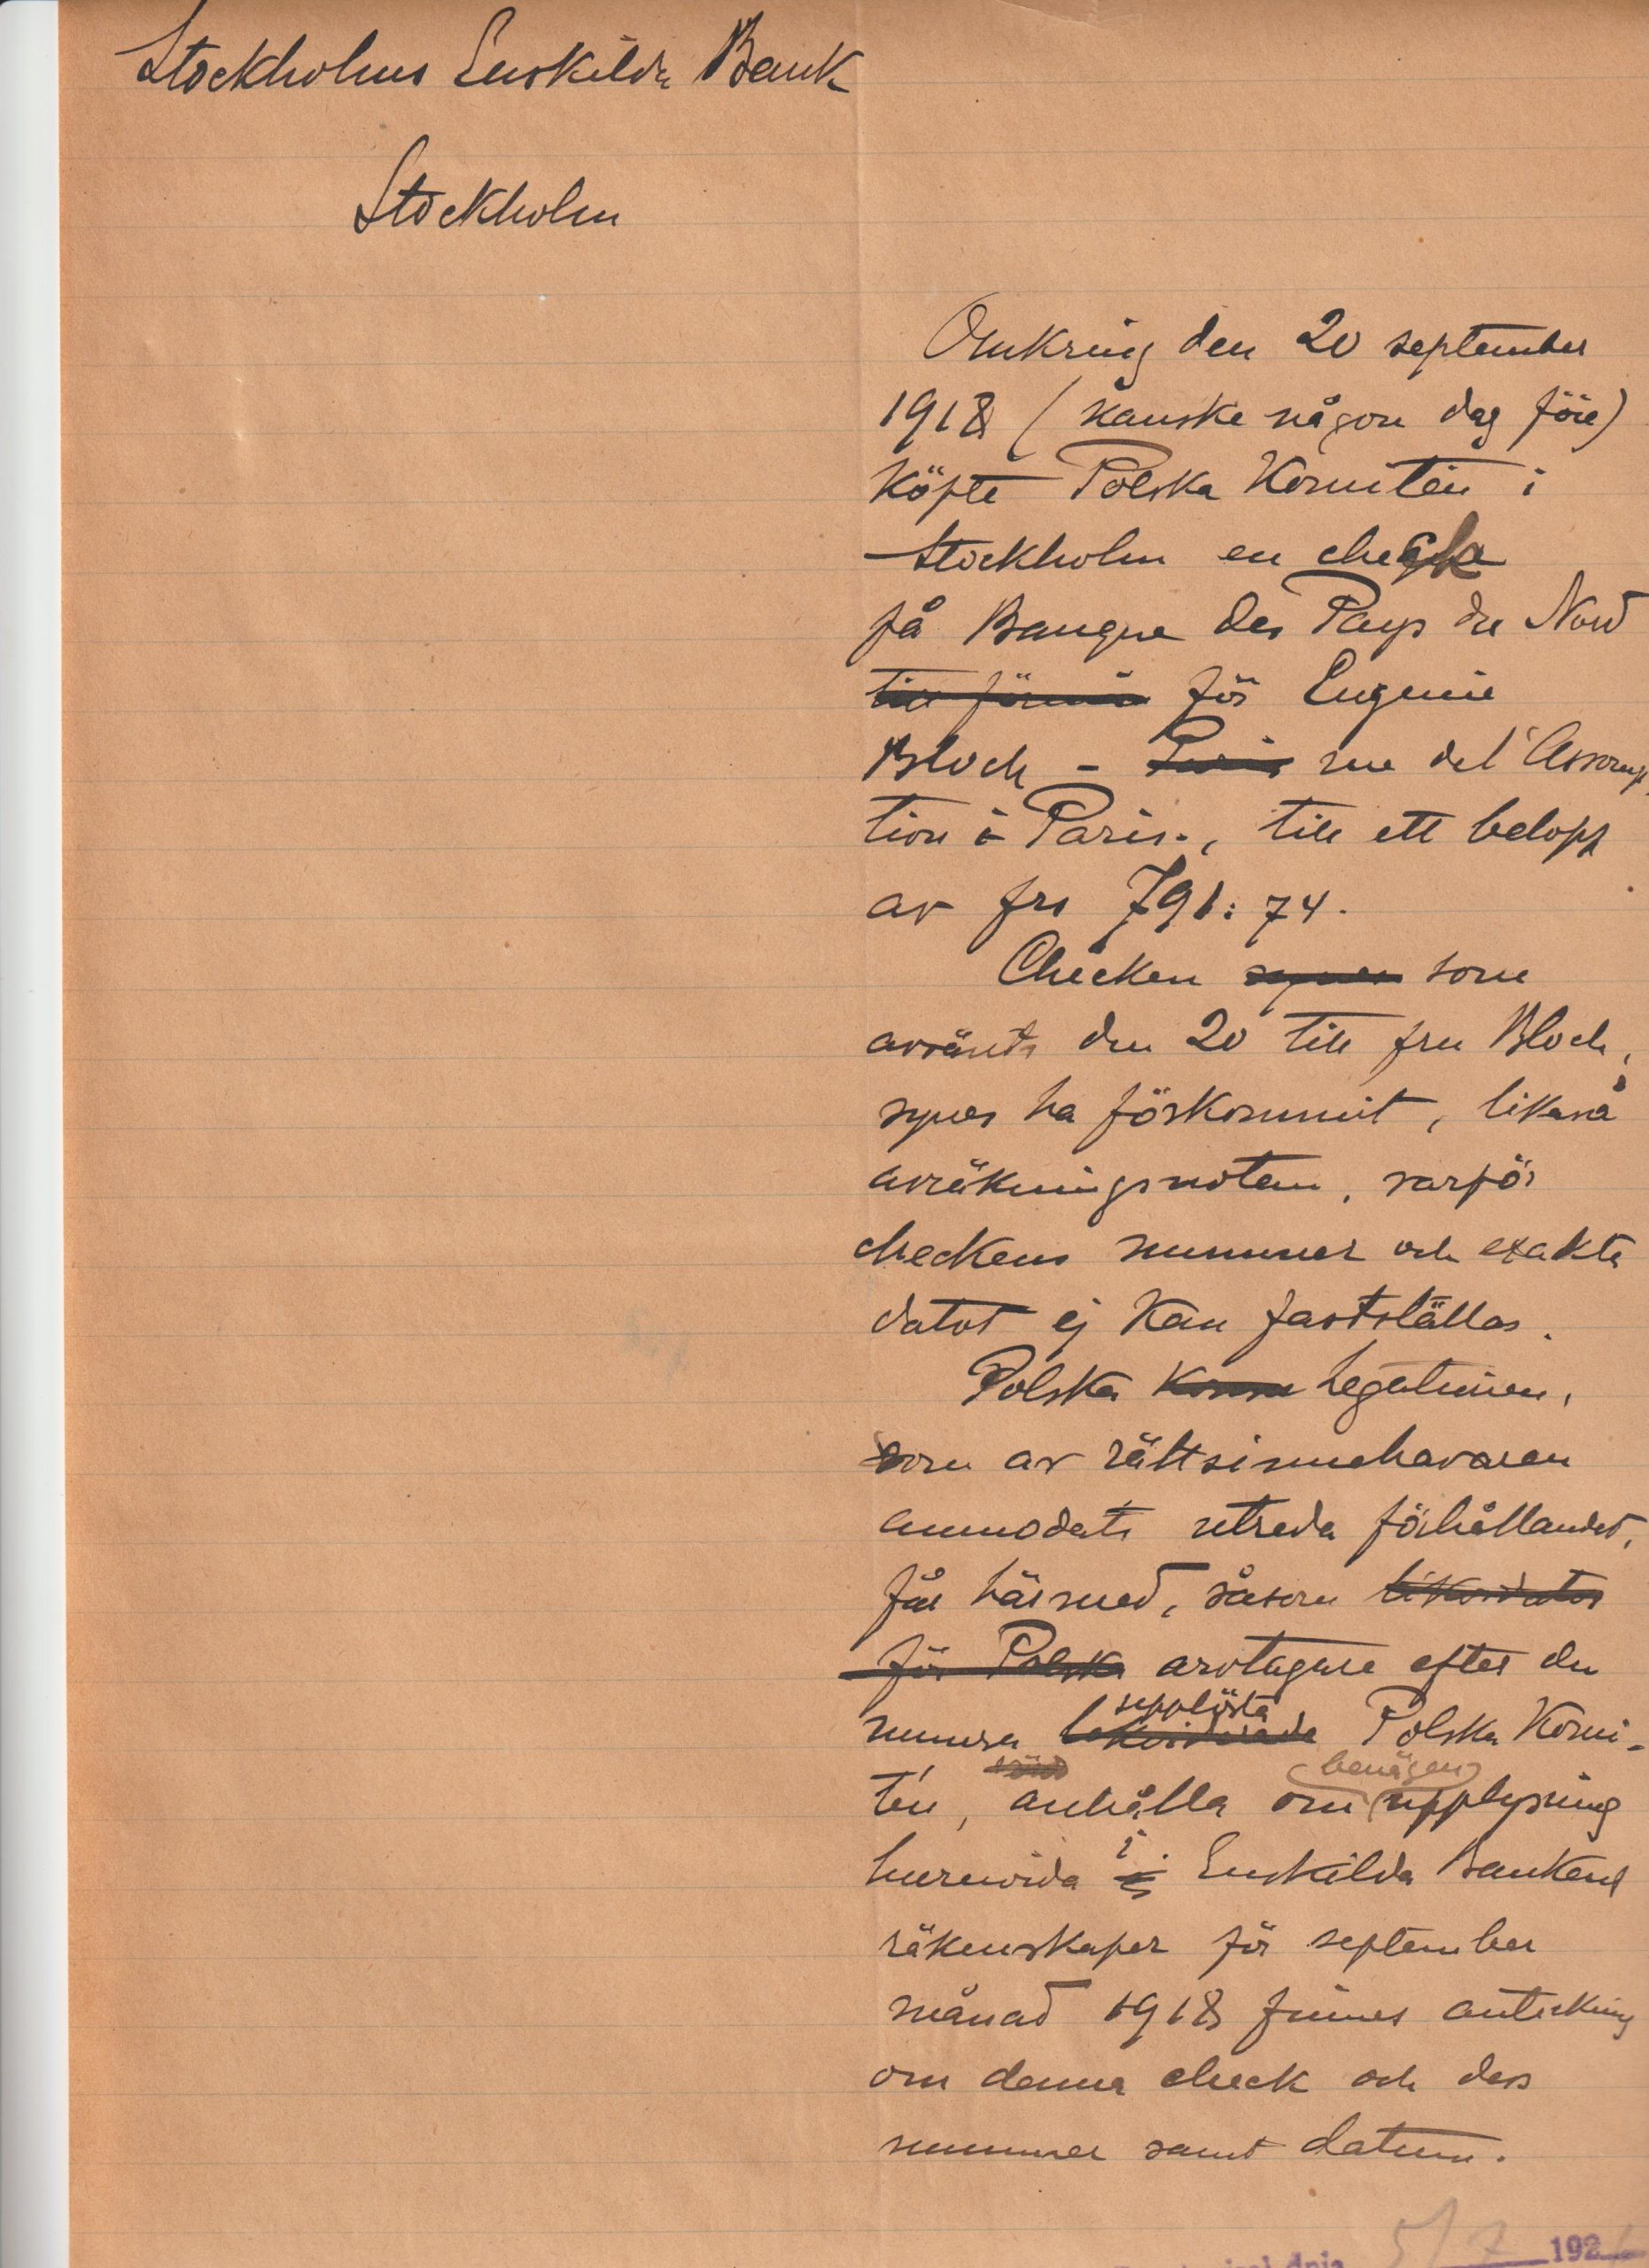 Stockholms Enskilda Bank
Stockholm
Omkring den 20 september
1918 (kanske någon dag före)
köpte Polska Komitén i
Stockholm en check
på Banque des Pays du Nord
till förmån för Eugenie
Bloch - Paris rue de l'Assomp-
tion i Paris., till ett belopp
av frs 791:74.
Checken synes som
avsänts den 20 till fru Bloch,
synes ha förkommit, likaså
avräkningsnotan, varför
checkens nummer och exakta
datot ej kan fastställas.
Polska Komi Legationen,
som av rättsinnehavaren
anmodats utreda förhållandet,
får härmed, såsom likvidator
för Polska arvtagare efter den
upplösta
numera likviderade Polska Komi-
benägen
tén, anhålla om upplysning
huruvida i Enskilda Bankens
räkenskaper för september
månad 1918 finnes anteckning
om denna check och dess
nummer samt datum.
5/7 192
dnia